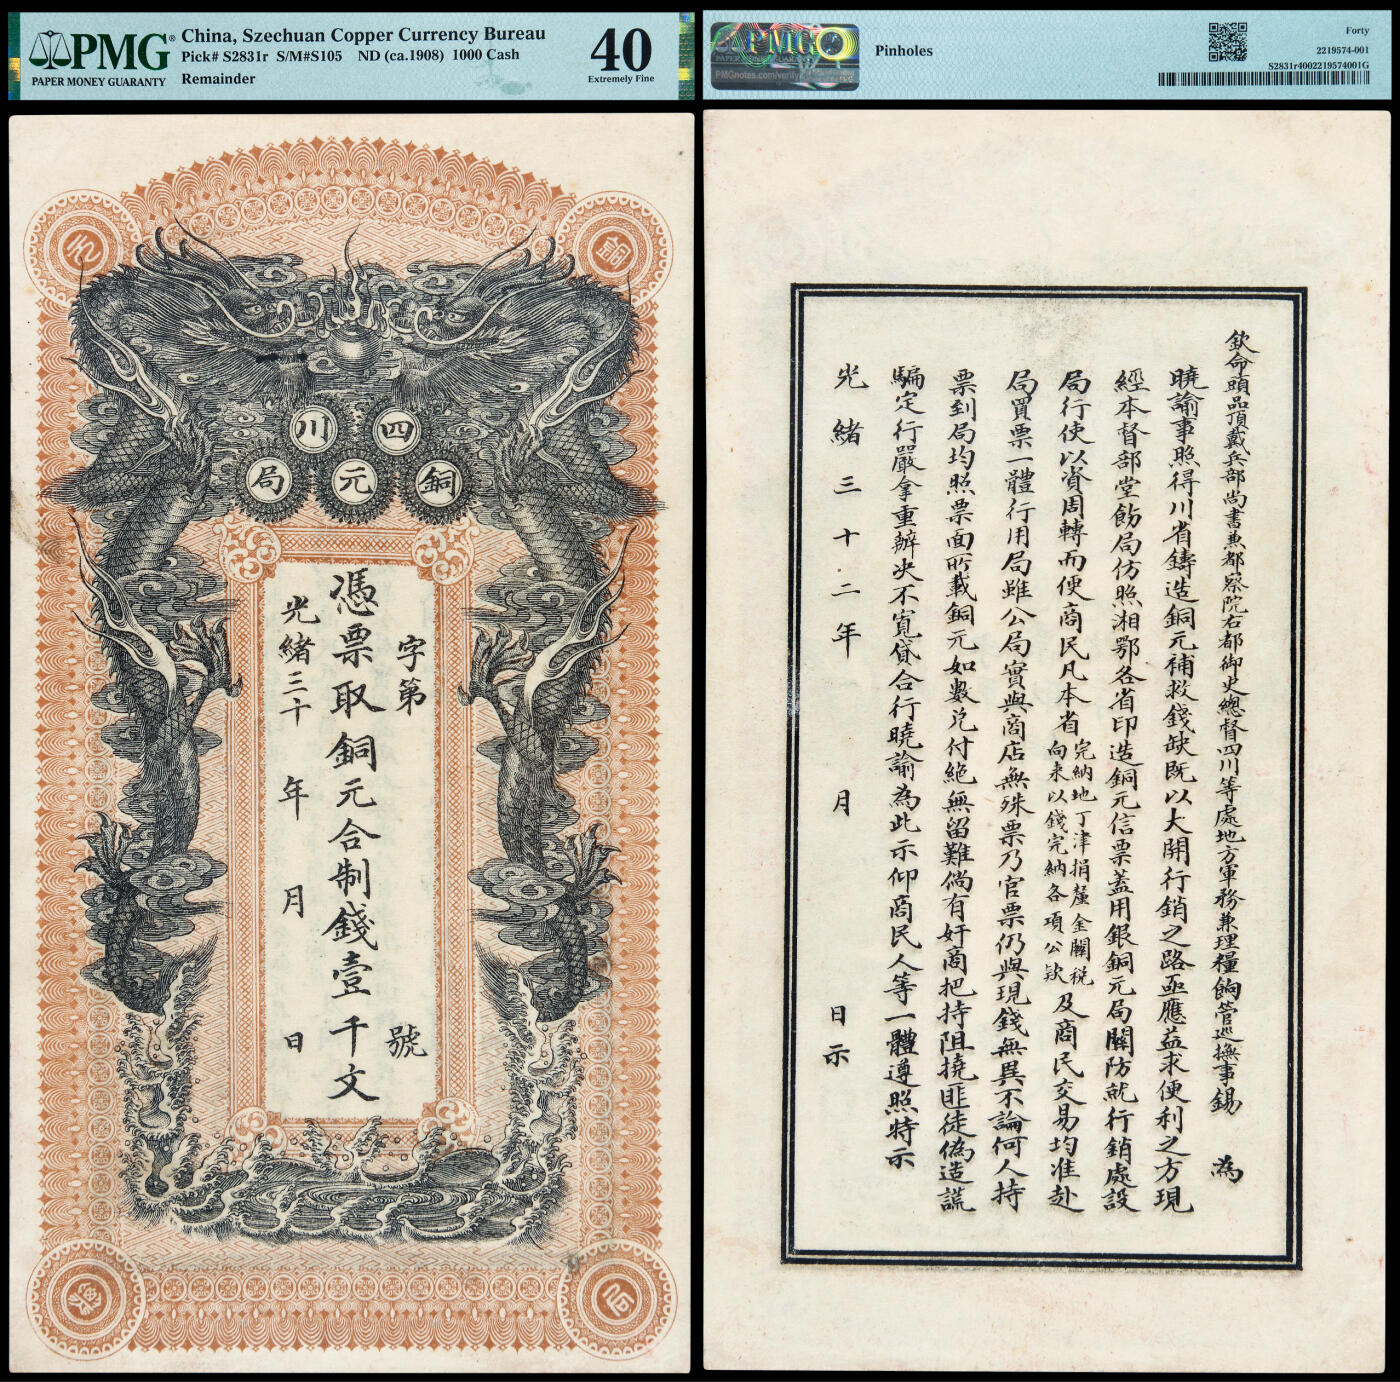 PMG®
PAPER MONEY GUARANTY
China, Szechuan Copper Currency Bureau
Pick# S2831r S/M#S105 ND (ca.1908) 1000 Cash
Remainder
40
Extremely Fine
PMG
Pinholes
Forty
2219574-001
S2831r4002219574001G
銅
元
四川
銅元局
字第 號
憑票取銅元合制錢壹千文
光緒三十 年 月 日
欽命頭品頂戴兵部尚書兼都察院右都御史總督四川等處地方軍務兼理糧餉管巡撫事錫 為
曉諭事照得川省鑄造銅元補救錢缺既以大開行銷之路亟應益求便利之方現
經本督部堂飭局仿照湘鄂各省印造銅元信票蓋用銀銅元局關防就行銷處設
局行使以資周轉而便商民凡本省完納地丁津捐釐金關稅向來以錢完納各項公款及商民交易均准赴
局買票一體行用局雖公局實與商店無殊票乃官票仍與現錢無異不論何人持
票到局均照票面所載銅元如數兌付絕無留難倘有奸商把持阻撓匪徒偽造謊
騙定行嚴拿重辦決不寬貸合行曉諭為此示仰商民人等一體遵照特示
光緒三十二年 月 日示